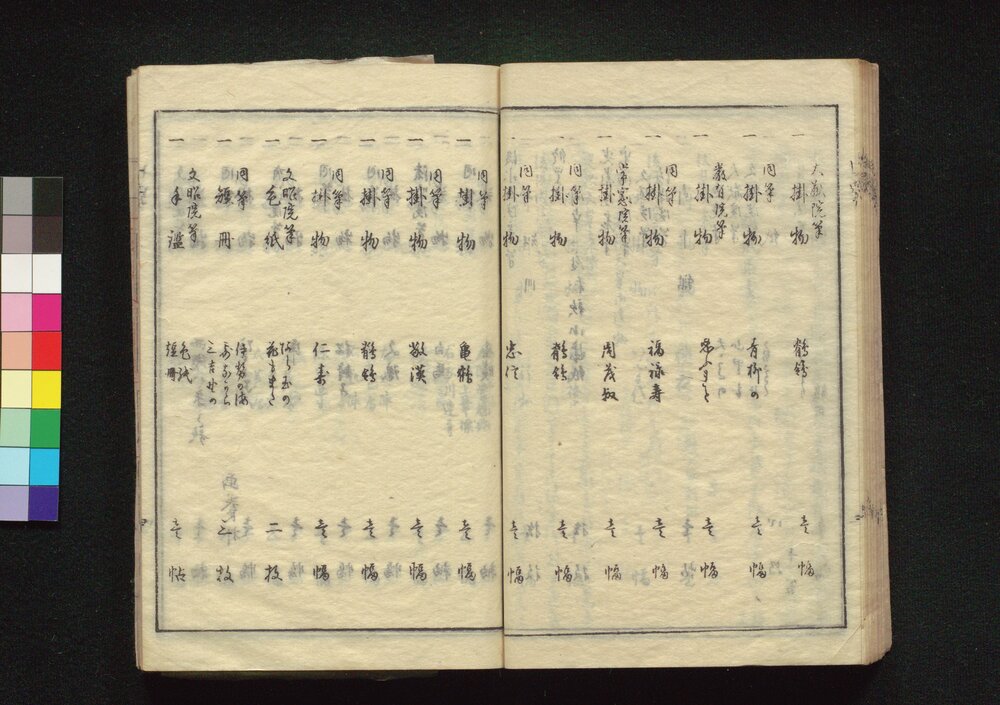 大猷院筆
一掛物 鶺鴒 壱幅
同筆
一掛物 青柳の 壱幅
厳有院筆
一掛物 壱幅
同筆
一掛物 福禄寿 壱幅
常憲院筆
一掛物 周茂叔 壱幅
同筆
一掛物 鶺鴒 壱幅
同筆
一掛物 忠信 壱幅
同筆
一掛物 亀鶴 壱幅
同筆
一掛物 壱幅
同筆
一掛物 鶺鴒 壱幅
同筆
一掛物 仁寿 壱幅
文昭院筆
一色紙 二枚
同筆
一短冊 伊勢の海 三吉野の 三枚
文昭院筆
一手鑑 色紙 短冊 壱帖